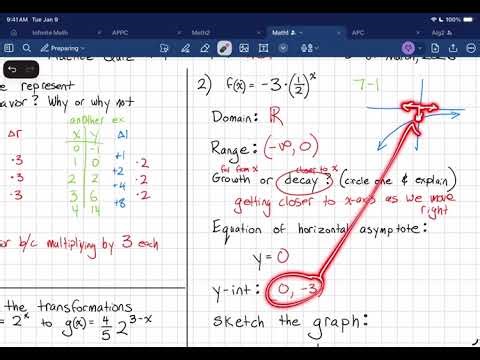 9:41 AM Tue Jan 9
Infinite Math
APPC
Math2
Math1
APC
Alg2
Preparing
Practice Quiz
of March, 2023
e represent
avor? Why or why not
another ex
Δr x y Δl
0 -1
·3 1 0 +1 ·2
·3 2 2 +2 ·2
·3 3 6 +4 ·2
4 14 +8
or b/c multiplying by 3 each
the transformations
= 2^x to g(x) = 4/5 2^(3-x)
2) f(x) = -3 · (1/2)^x
7-1
Domain: ℝ
Range: (-∞, 0)
far from x closer to x
Growth or decay? (circle one & explain)
getting closer to x-axis as we move
right
Equation of horizontal asymptote:
y = 0
y-int: 0, -3
sketch the graph: